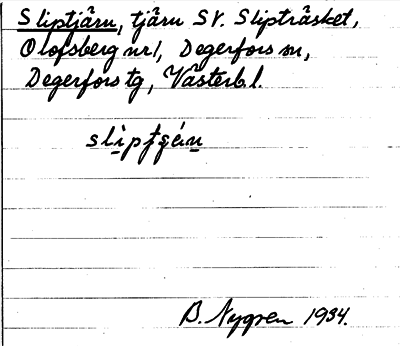 Sliptjärn, tjärn SV. Slipträsket,
Olofsberg nr 1, Degerfors sn,
Degerfors tg, Västerb. l.
B. Nygren 1934.